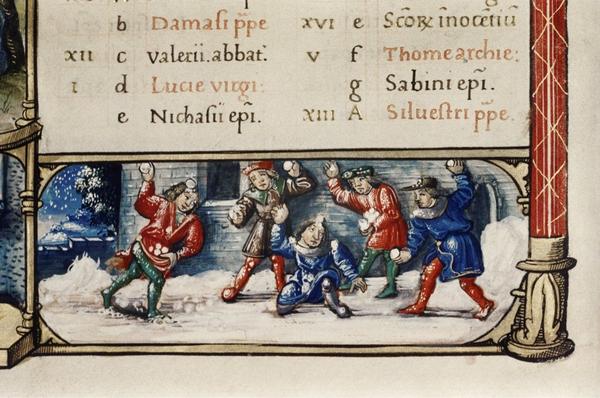 b Damasi ppe
xii c valerii. abbat.
i d Lucie virgi.
e Nichasii epi.
xvi e Scõꝝ inocẽtiũ
v f Thome archie:
g Sabini epi.
xiii A Siluestri ppe.